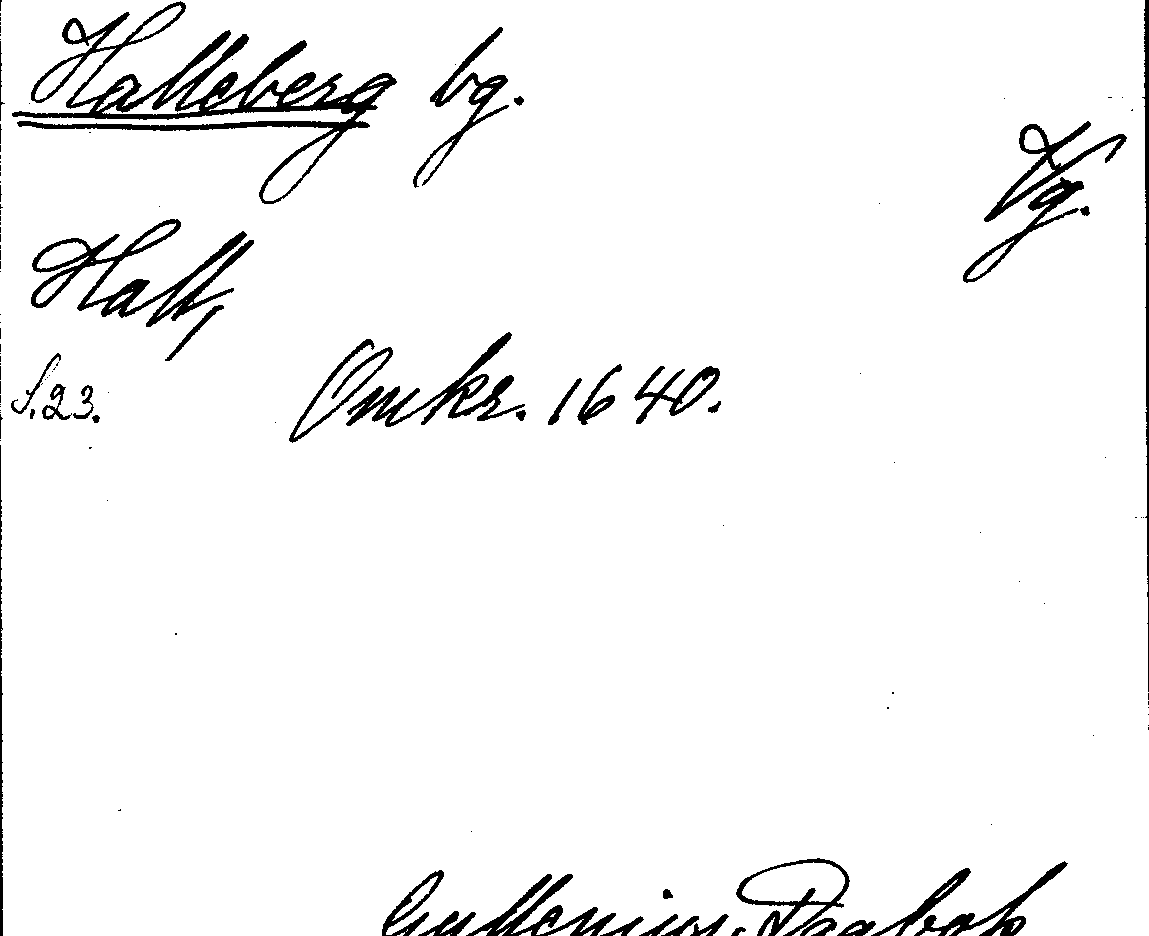 Halleberg bg.
Vg.
Hall,
S. 23. Omkr. 1640.
Gyllenius, Dagbok